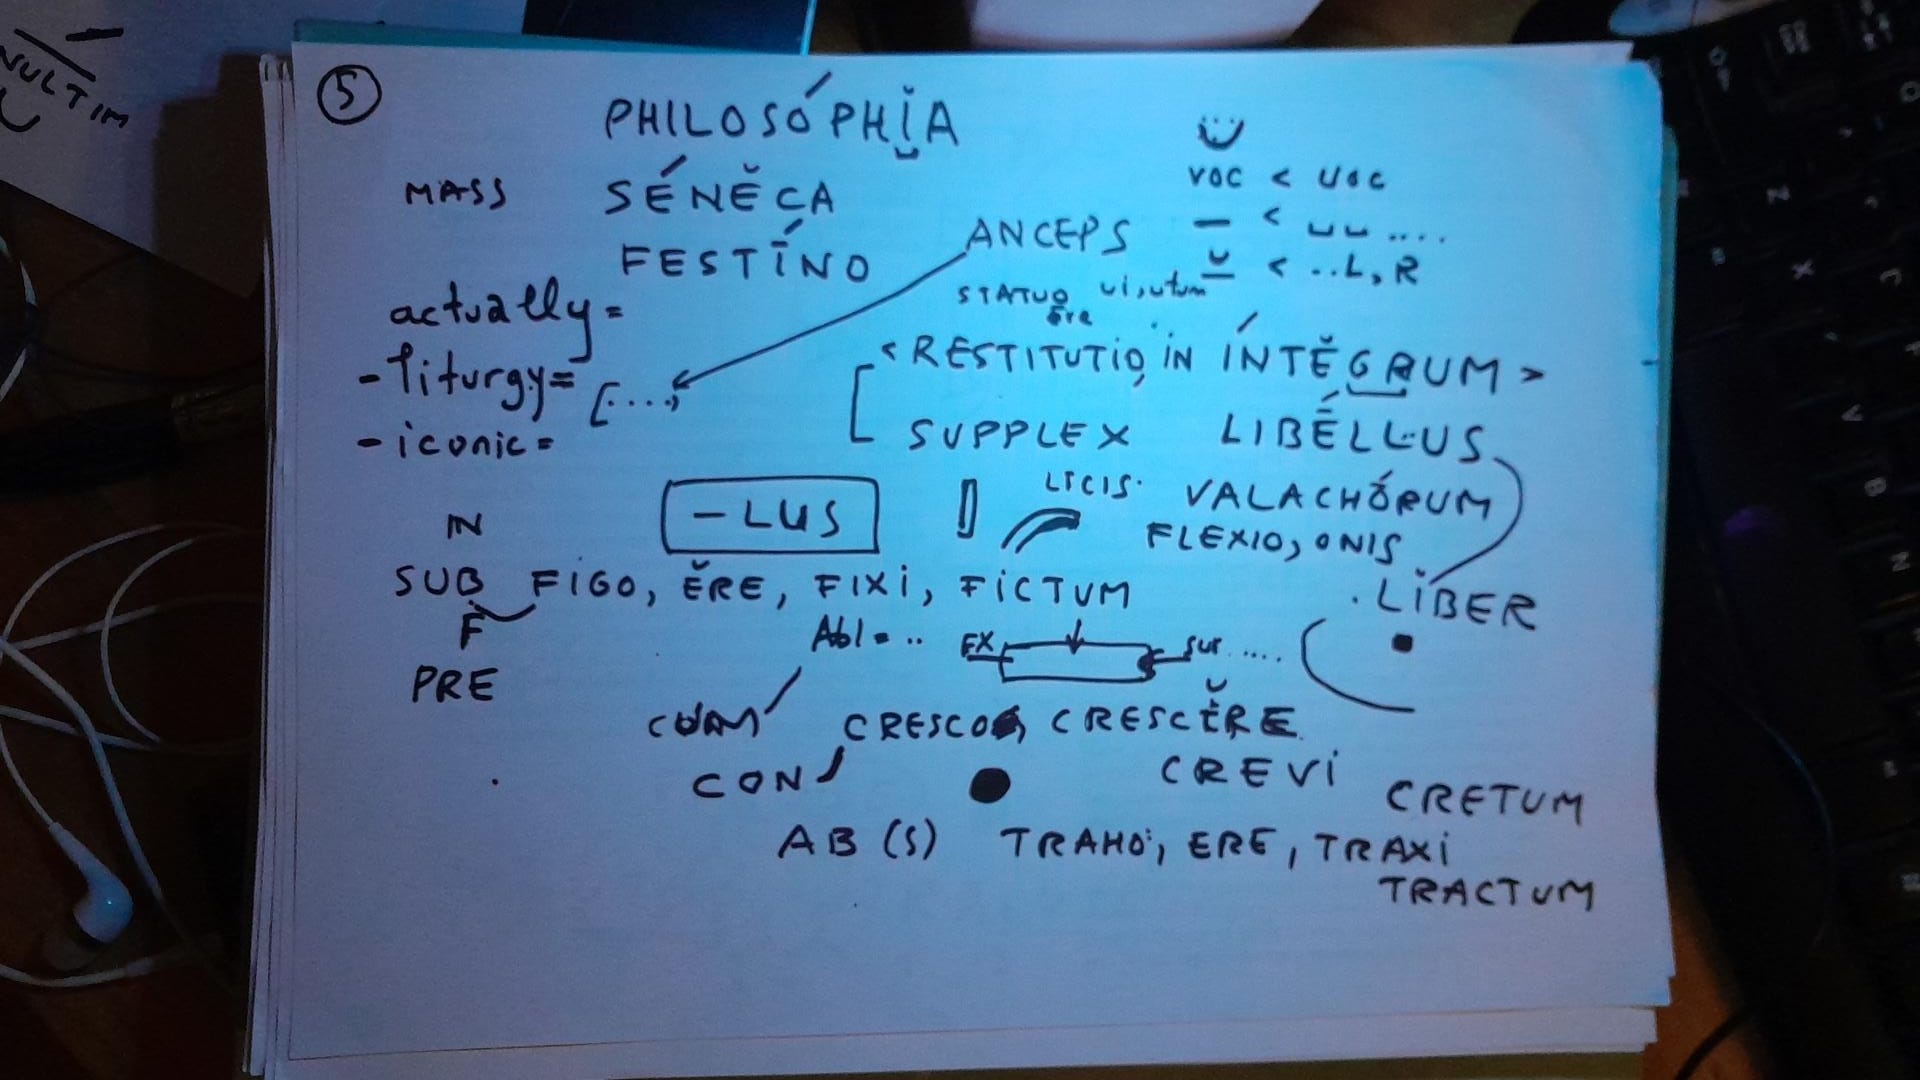 NULTIM
5
PHILOSÓPHĬA
MASS SÉNĔCA VOC < VOC
FESTĪ́NO ANCEPS — < ◡◡ ....
actually = STATUO, ui, utum < ..L, R
ĕre
- liturgy = [....,
< RESTITUTIO, IN ÍNTĔGRUM >
- iconic = SUPPLEX LIBÉLLUS
ICIS. VALACHÓRUM
IN - LUS FLEXIO, ONIS
SUB FIGO, ĔRE, FIXI, FICTUM . LĬBER
F Abl = .. EX sur ....
PRE
COM CRESCO, CRESCĔRE
CON CREVI
CRETUM
AB (S) TRAHO, ERE, TRAXI
TRACTUM